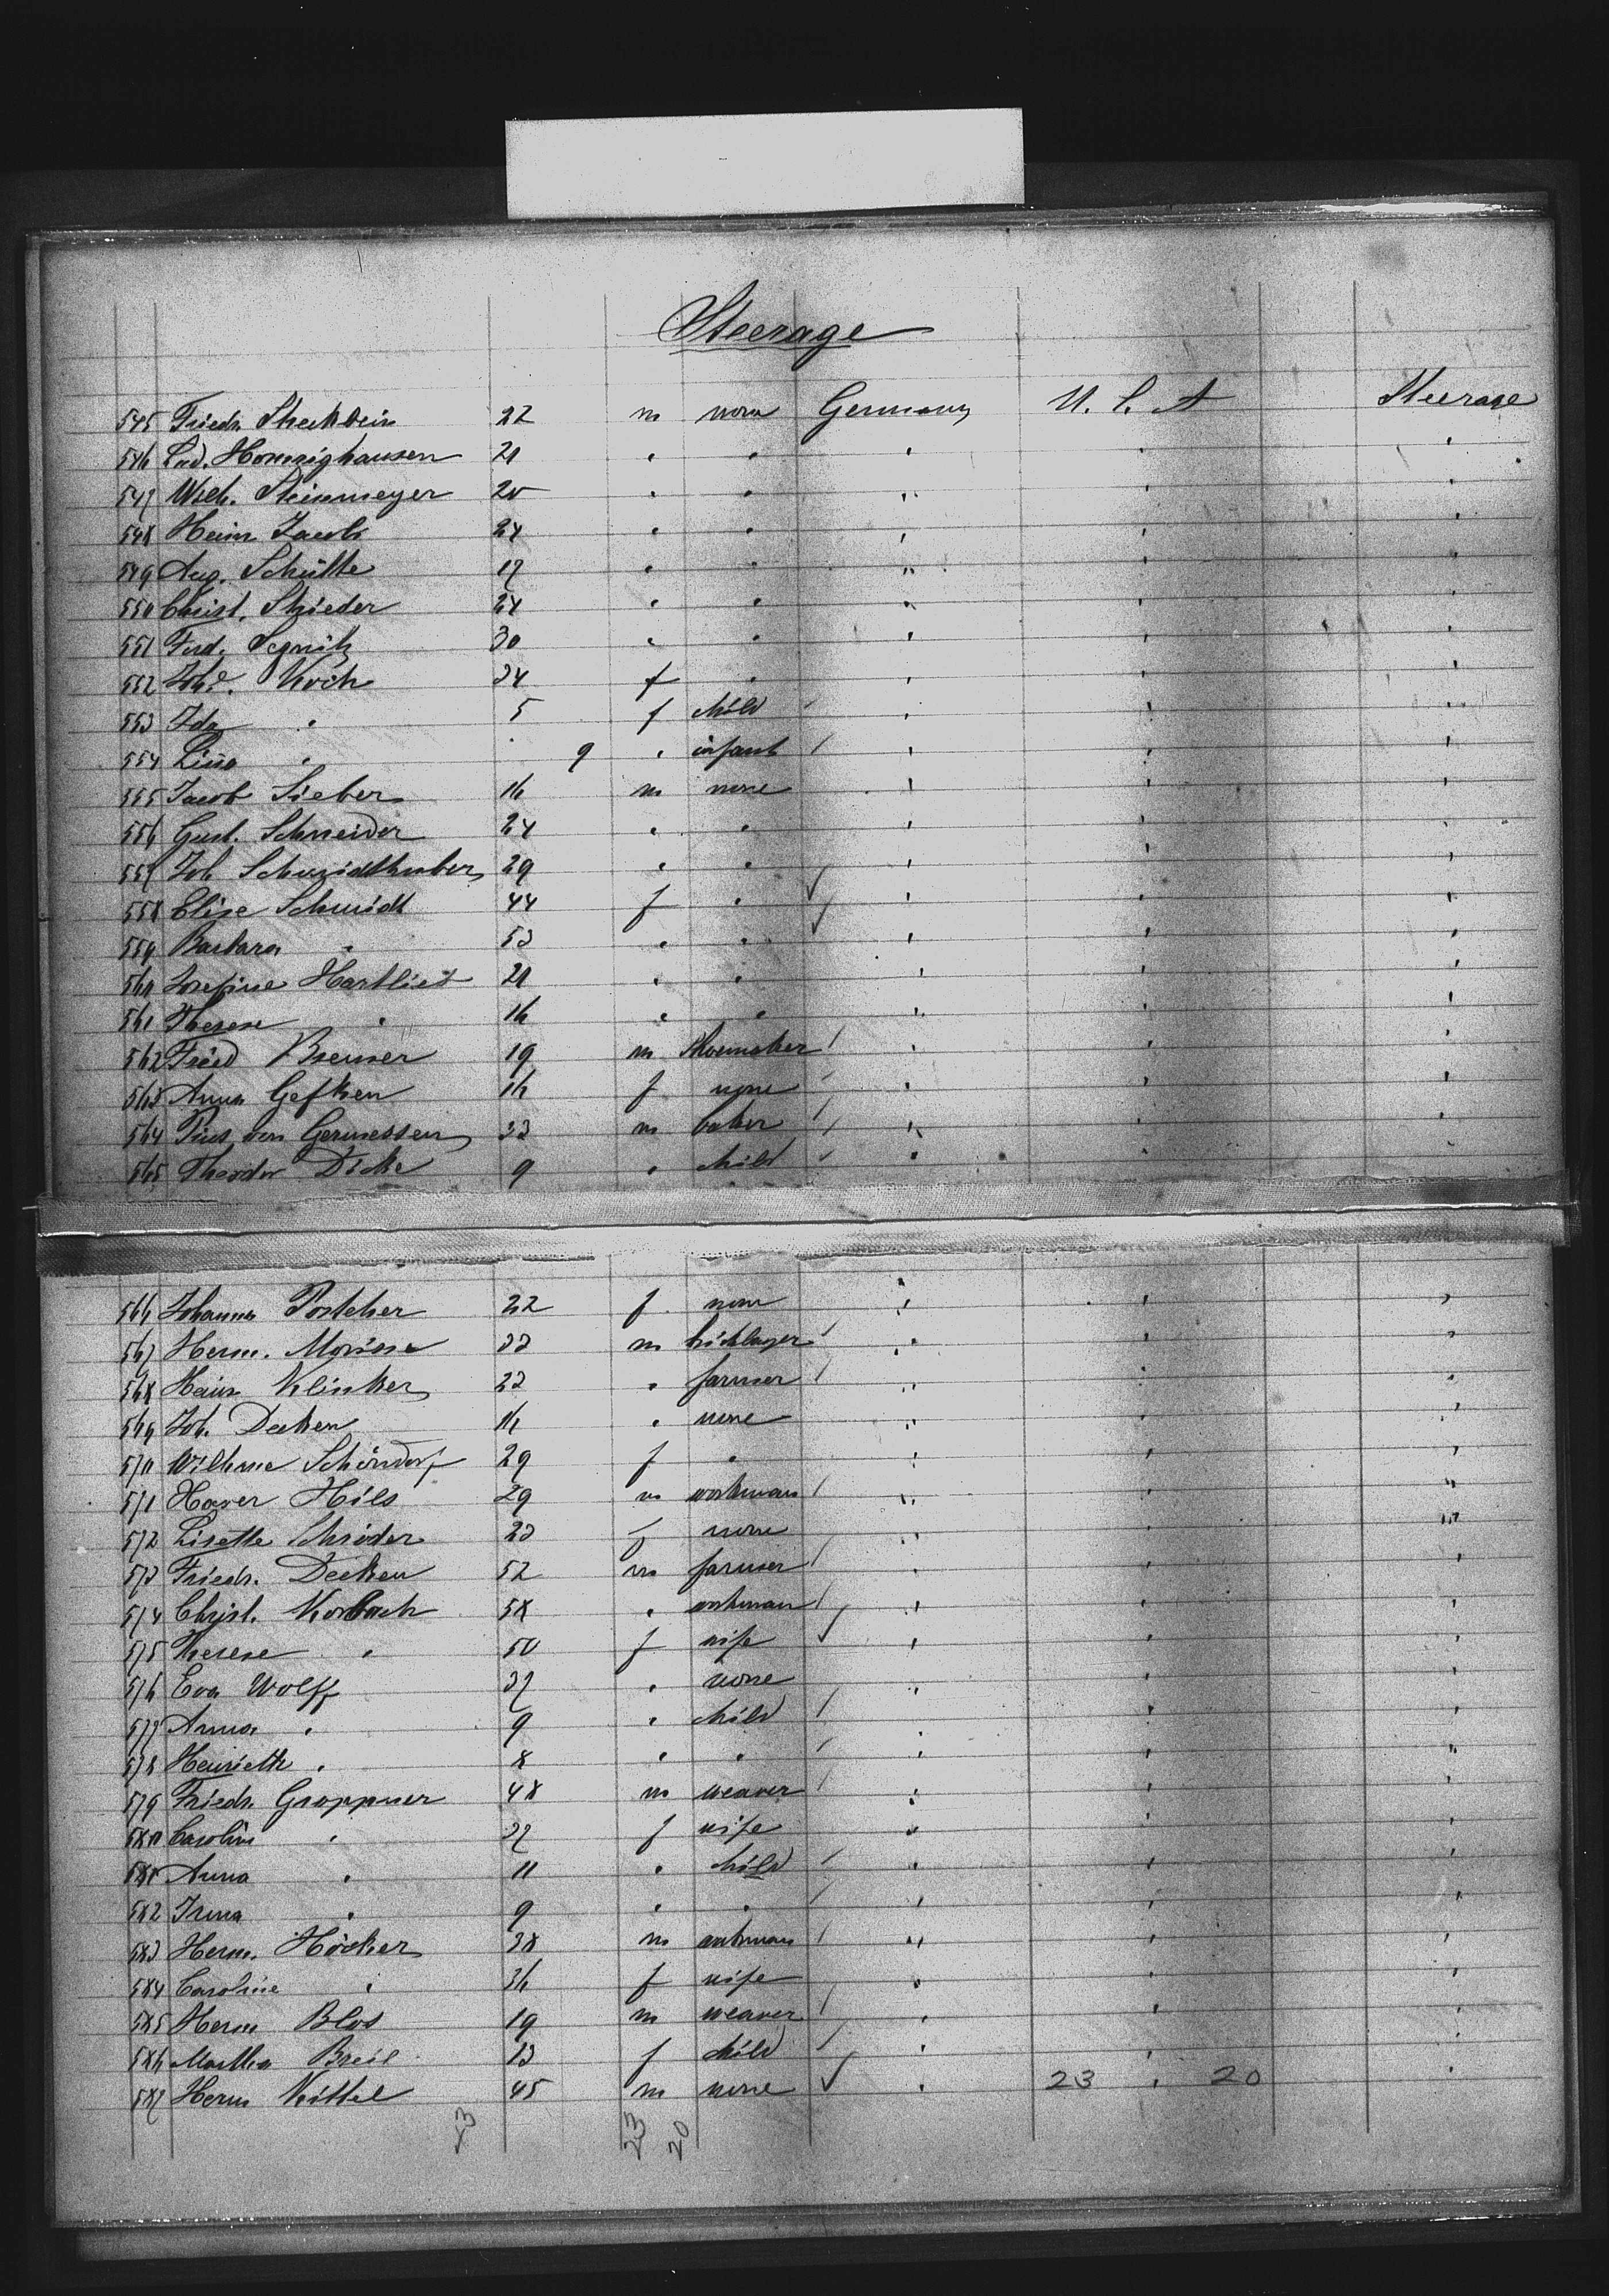 Steerage
545 Friedr. Steckbein 22 m none Germany U. S. A Steerage
546 Lud. Hornighausen 21 " " " " "
547 Wilh. Steinmeyer 20 " " " " "
548 Heinr. Jacob 24 " " " " "
549 Aug. Schütte 17 " " " " "
550 Christ. Strieder 24 " " " " "
551 Ferd. Segnitz 30 " " " " "
552 Joh. Koch 34 f " " " "
553 Ida " 5 f child " " "
554 Lina " 9 " infant " " "
555 Jacob Sieber 16 m none " " "
556 Gust. Schneider 24 " " " " "
557 Joh Schmidthuber 29 " " " " "
558 Elise Schmidt 44 f " " " "
559 Barbara " 53 " " " " "
560 Josefine Hartlieb 21 " " " " "
561 Therese " 16 " " " " "
562 Fried Bremer 19 m shoemaker " " "
563 Anna Gefken 16 f none " " "
564 Pius von Germessen 33 m baker " " "
565 Theodor Dicke 9 " child " " "
566 Johanna Postcher 22 f none " " "
567 Herm. Morisse 33 m bricklayer " " "
568 Heinr Klinker 23 " farmer " " "
569 Joh. Decken 16 " none " " "
570 Wilhme Schöndorf 29 f " " " "
571 Xaver Hils 29 m workman " " "
572 Lisette Schröder 23 f none " " "
573 Friedr. Decken 52 m farmer " " "
574 Christ. Korbach 58 " workman " " "
575 Therese " 50 f wife " " "
576 Eva Wolff 37 " none " " "
577 Anna " 9 " child " " "
578 Henriette " 8 " " " " "
579 Friedr. Groppner 48 m weaver " " "
580 Caroline " 37 f wife " " "
581 Anna " 11 " child " " "
582 Irma " 9 " " " " "
583 Herm. Höcker 38 m workman " " "
584 Caroline " 36 f wife " " "
585 Herm Blos 19 m weaver " " "
586 Martha Breil 13 f child " " "
587 Herm Kittel 45 m none " 23 " 20 "
23 20